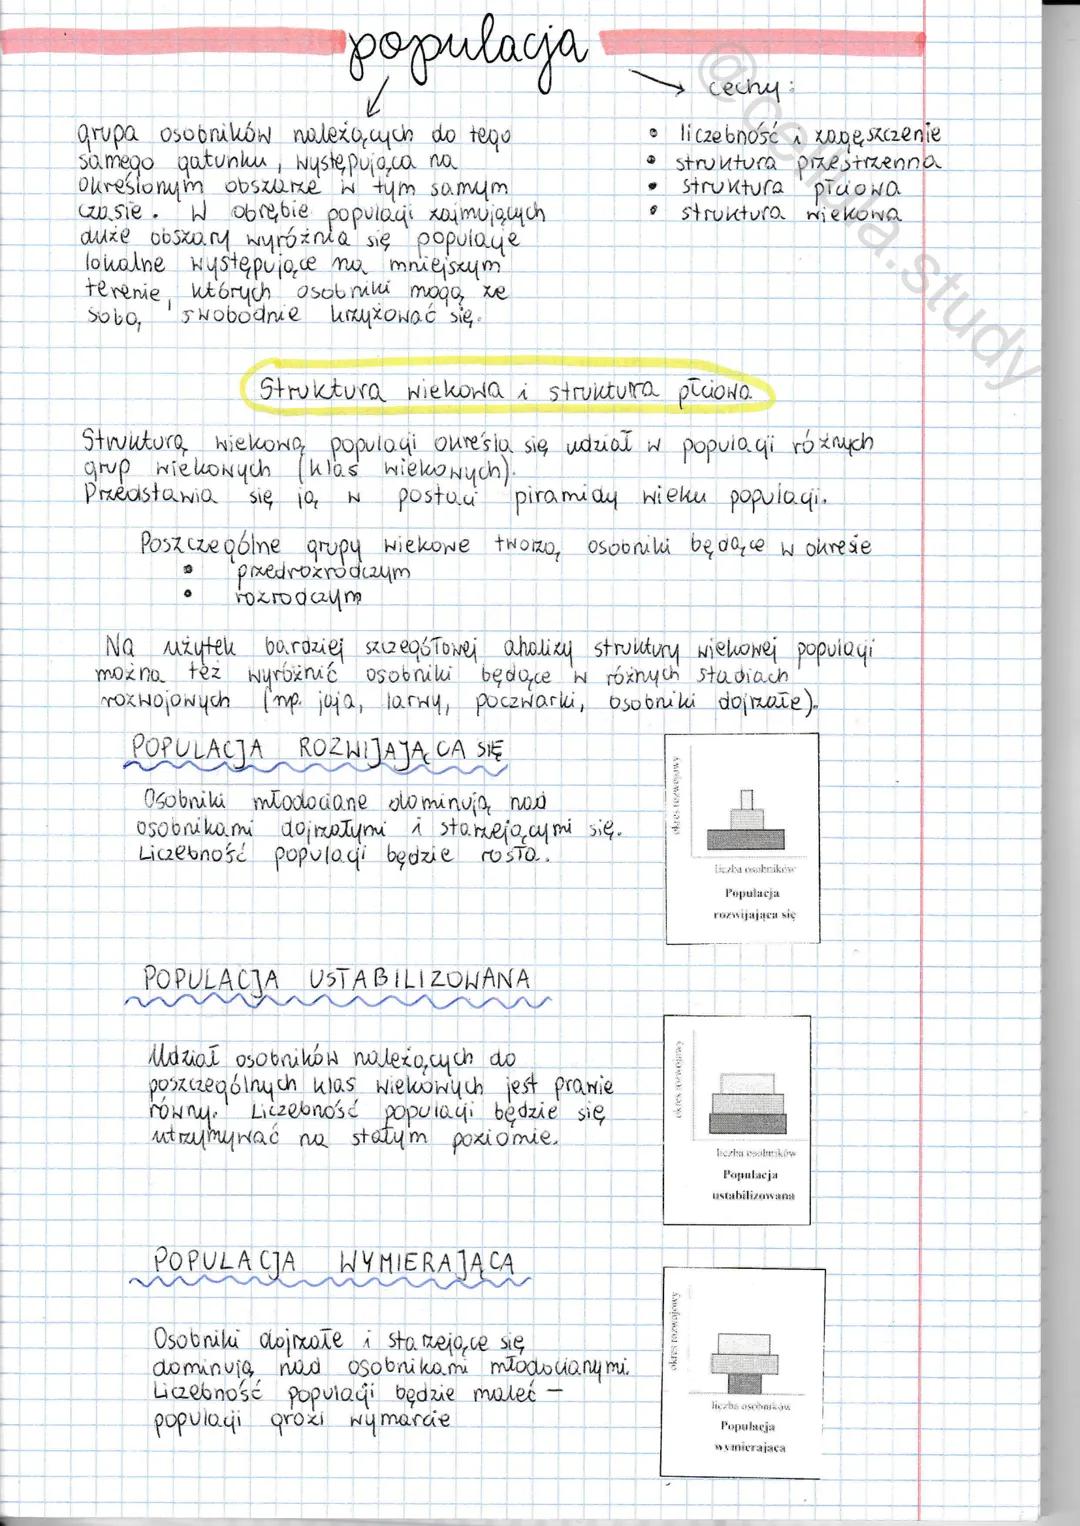 populacja
grupa osobników należących do tego
samego gatunku, występująca na
określonym obszarze w tym samym
czasie. W obrębie populacji zajmujących
duże obszary wyróżnia się populacje
lokalne występujące na mniejszym
terenie, których osobniki mogą ze
sobą swobodnie krzyżować się.
cechy:
• liczebność i zagęszczenie
• struktura przestrzenna
• struktura płciowa
• struktura wiekowa
@cellula.study
Struktura wiekowa i struktura płciowa
Strukturą wiekową populacji określa się udział w populacji różnych
grup wiekowych (klas wiekowych).
Przedstawia się ją w postaci piramidy wieku populacji.
Poszczególne grupy wiekowe tworzą osobniki będące w okresie
• przedrozrodczym
• rozrodczym
Na użytek bardziej szczegółowej analizy struktury wiekowej populacji
można też wyróżnić osobniki będące w różnych stadiach
rozwojowych (np. jaja, larwy, poczwarki, osobniki dojrzałe).
POPULACJA ROZWIJAJĄCA SIĘ
Osobniki młodociane dominują nad
osobnikami dojrzałymi i starzejącymi się.
Liczebność populacji będzie rosła.
okres rozwojowy
liczba osobników
Populacja
rozwijająca się
POPULACJA USTABILIZOWANA
Udział osobników należących do
poszczególnych klas wiekowych jest prawie
równy. Liczebność populacji będzie się
utrzymywać na stałym poziomie.
okres rozwojowy
liczba osobników
Populacja
ustabilizowana
POPULACJA WYMIERAJĄCA
Osobniki dojrzałe i starzejące się
dominują nad osobnikami młodocianymi.
Liczebność populacji będzie maleć –
populacji grozi wymarcie
okres rozwojowy
liczba osobników
Populacja
wymierająca